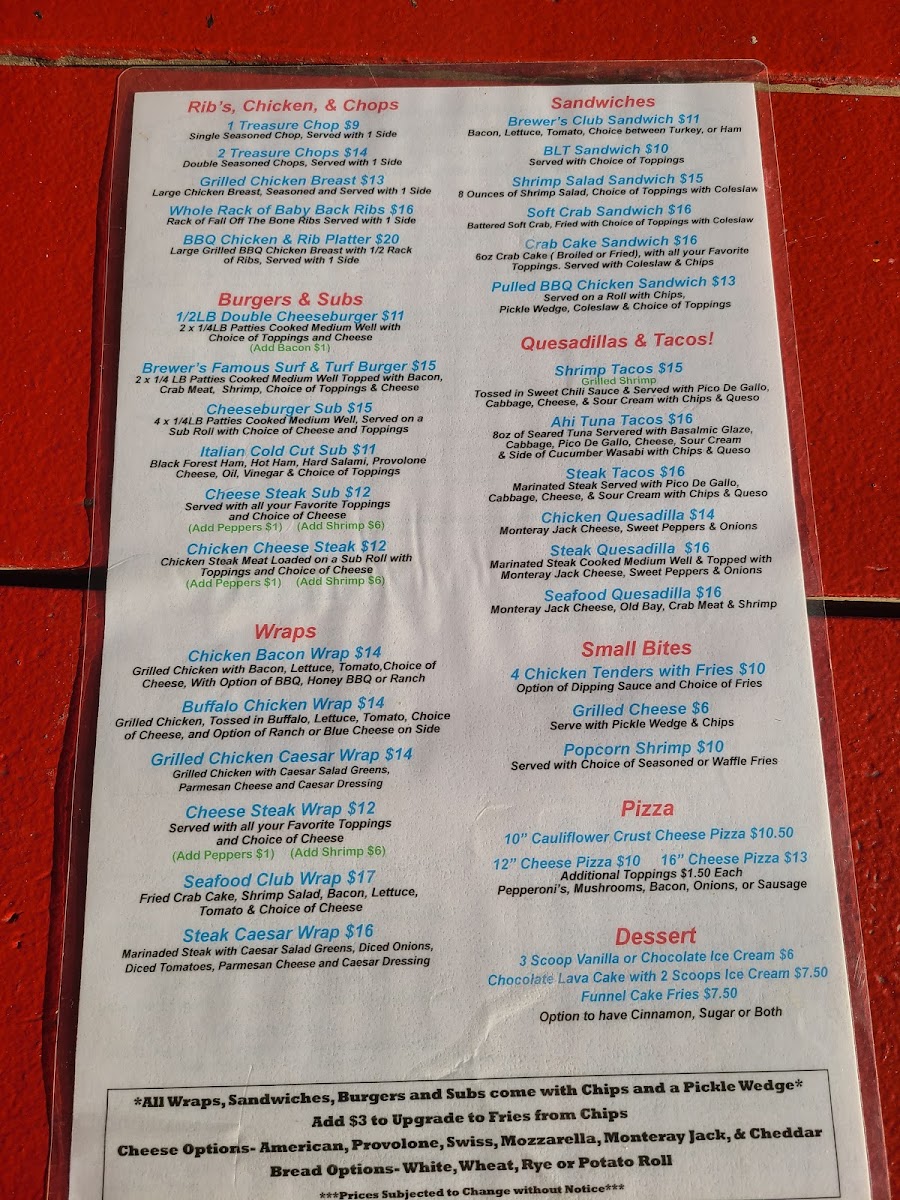 Rib's, Chicken, & Chops
1 Treasure Chop $9
Single Seasoned Chop, Served with 1 Side
2 Treasure Chops $14
Double Seasoned Chops, Served with 1 Side
Grilled Chicken Breast $13
Large Chicken Breast, Seasoned and Served with 1 Side
Whole Rack of Baby Back Ribs $16
Rack of Fall Off The Bone Ribs Served with 1 Side
BBQ Chicken & Rib Platter $20
Large Grilled BBQ Chicken Breast with 1/2 Rack
of Ribs, Served with 1 Side
Burgers & Subs
1/2LB Double Cheeseburger $11
2 x 1/4LB Patties Cooked Medium Well with
Choice of Toppings and Cheese
(Add Bacon $1)
Brewer's Famous Surf & Turf Burger $15
2 x 1/4 LB Patties Cooked Medium Well Topped with Bacon,
Crab Meat, Shrimp, Choice of Toppings & Cheese
Cheeseburger Sub $15
4 x 1/4LB Patties Cooked Medium Well, Served on a
Sub Roll with Choice of Cheese and Toppings
Italian Cold Cut Sub $11
Black Forest Ham, Hot Ham, Hard Salami, Provolone
Cheese, Oil, Vinegar & Choice of Toppings
Cheese Steak Sub $12
Served with all your Favorite Toppings
and Choice of Cheese
(Add Peppers $1) (Add Shrimp $6)
Chicken Cheese Steak $12
Chicken Steak Meat Loaded on a Sub Roll with
Toppings and Choice of Cheese
(Add Peppers $1) (Add Shrimp $6)
Wraps
Chicken Bacon Wrap $14
Grilled Chicken with Bacon, Lettuce, Tomato,Choice of
Cheese, With Option of BBQ, Honey BBQ or Ranch
Buffalo Chicken Wrap $14
Grilled Chicken, Tossed in Buffalo, Lettuce, Tomato, Choice
of Cheese, and Option of Ranch or Blue Cheese on Side
Grilled Chicken Caesar Wrap $14
Grilled Chicken with Caesar Salad Greens,
Parmesan Cheese and Caesar Dressing
Cheese Steak Wrap $12
Served with all your Favorite Toppings
and Choice of Cheese
(Add Peppers $1) (Add Shrimp $6)
Seafood Club Wrap $17
Fried Crab Cake, Shrimp Salad, Bacon, Lettuce,
Tomato & Choice of Cheese
Steak Caesar Wrap $16
Marinaded Steak with Caesar Salad Greens, Diced Onions,
Diced Tomatoes, Parmesan Cheese and Caesar Dressing
Sandwiches
Brewer's Club Sandwich $11
Bacon, Lettuce, Tomato, Choice between Turkey, or Ham
BLT Sandwich $10
Served with Choice of Toppings
Shrimp Salad Sandwich $15
8 Ounces of Shrimp Salad, Choice of Toppings with Coleslaw
Soft Crab Sandwich $16
Battered Soft Crab, Fried with Choice of Toppings with Coleslaw
Crab Cake Sandwich $16
6oz Crab Cake ( Broiled or Fried), with all your Favorite
Toppings. Served with Coleslaw & Chips
Pulled BBQ Chicken Sandwich $13
Served on a Roll with Chips,
Pickle Wedge, Coleslaw & Choice of Toppings
Quesadillas & Tacos!
Shrimp Tacos $15
Grilled Shrimp
Tossed in Sweet Chili Sauce & Served with Pico De Gallo,
Cabbage, Cheese, & Sour Cream with Chips & Queso
Ahi Tuna Tacos $16
8oz of Seared Tuna Servered with Basalmic Glaze,
Cabbage, Pico De Gallo, Cheese, Sour Cream
& Side of Cucumber Wasabi with Chips & Queso
Steak Tacos $16
Marinated Steak Served with Pico De Gallo,
Cabbage, Cheese, & Sour Cream with Chips & Queso
Chicken Quesadilla $14
Monteray Jack Cheese, Sweet Peppers & Onions
Steak Quesadilla $16
Marinated Steak Cooked Medium Well & Topped with
Monteray Jack Cheese, Sweet Peppers & Onions
Seafood Quesadilla $16
Monteray Jack Cheese, Old Bay, Crab Meat & Shrimp
Small Bites
4 Chicken Tenders with Fries $10
Option of Dipping Sauce and Choice of Fries
Grilled Cheese $6
Serve with Pickle Wedge & Chips
Popcorn Shrimp $10
Served with Choice of Seasoned or Waffle Fries
Pizza
10" Cauliflower Crust Cheese Pizza $10.50
12" Cheese Pizza $10 16" Cheese Pizza $13
Additional Toppings $1.50 Each
Pepperoni's, Mushrooms, Bacon, Onions, or Sausage
Dessert
3 Scoop Vanilla or Chocolate Ice Cream $6
Chocolate Lava Cake with 2 Scoops Ice Cream $7.50
Funnel Cake Fries $7.50
Option to have Cinnamon, Sugar or Both
*All Wraps, Sandwiches, Burgers and Subs come with Chips and a Pickle Wedge*
Add $3 to Upgrade to Fries from Chips
Cheese Options- American, Provolone, Swiss, Mozzarella, Monteray Jack, & Cheddar
Bread Options- White, Wheat, Rye or Potato Roll
***Prices Subjected to Change without Notice***